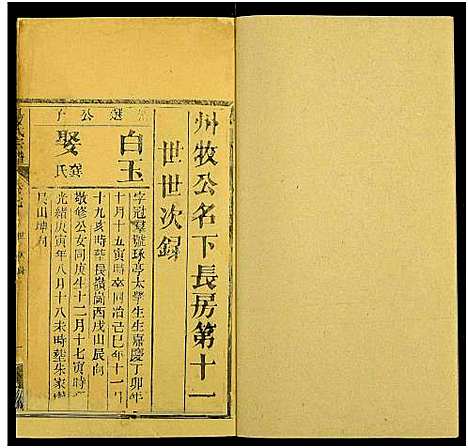 州牧公名下長房第十一
世世次録
選公子
白玉
娶
龔氏
字冠羣號球亭太學生生嘉慶丁卯年
十月十五寅時卒同治己巳年十一月
十九亥時塟長嶺崗西戌山辰向
敬修公女同庚生十二月十七寅時
光緒庚寅年八月十八未時塟朱家
艮山坤向